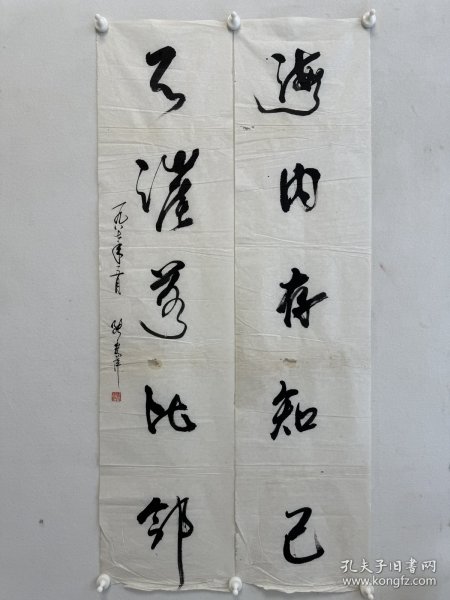 海内存知己
天涯若比邻
一九八七年二月
孔夫子旧书网
www.kongfz.com